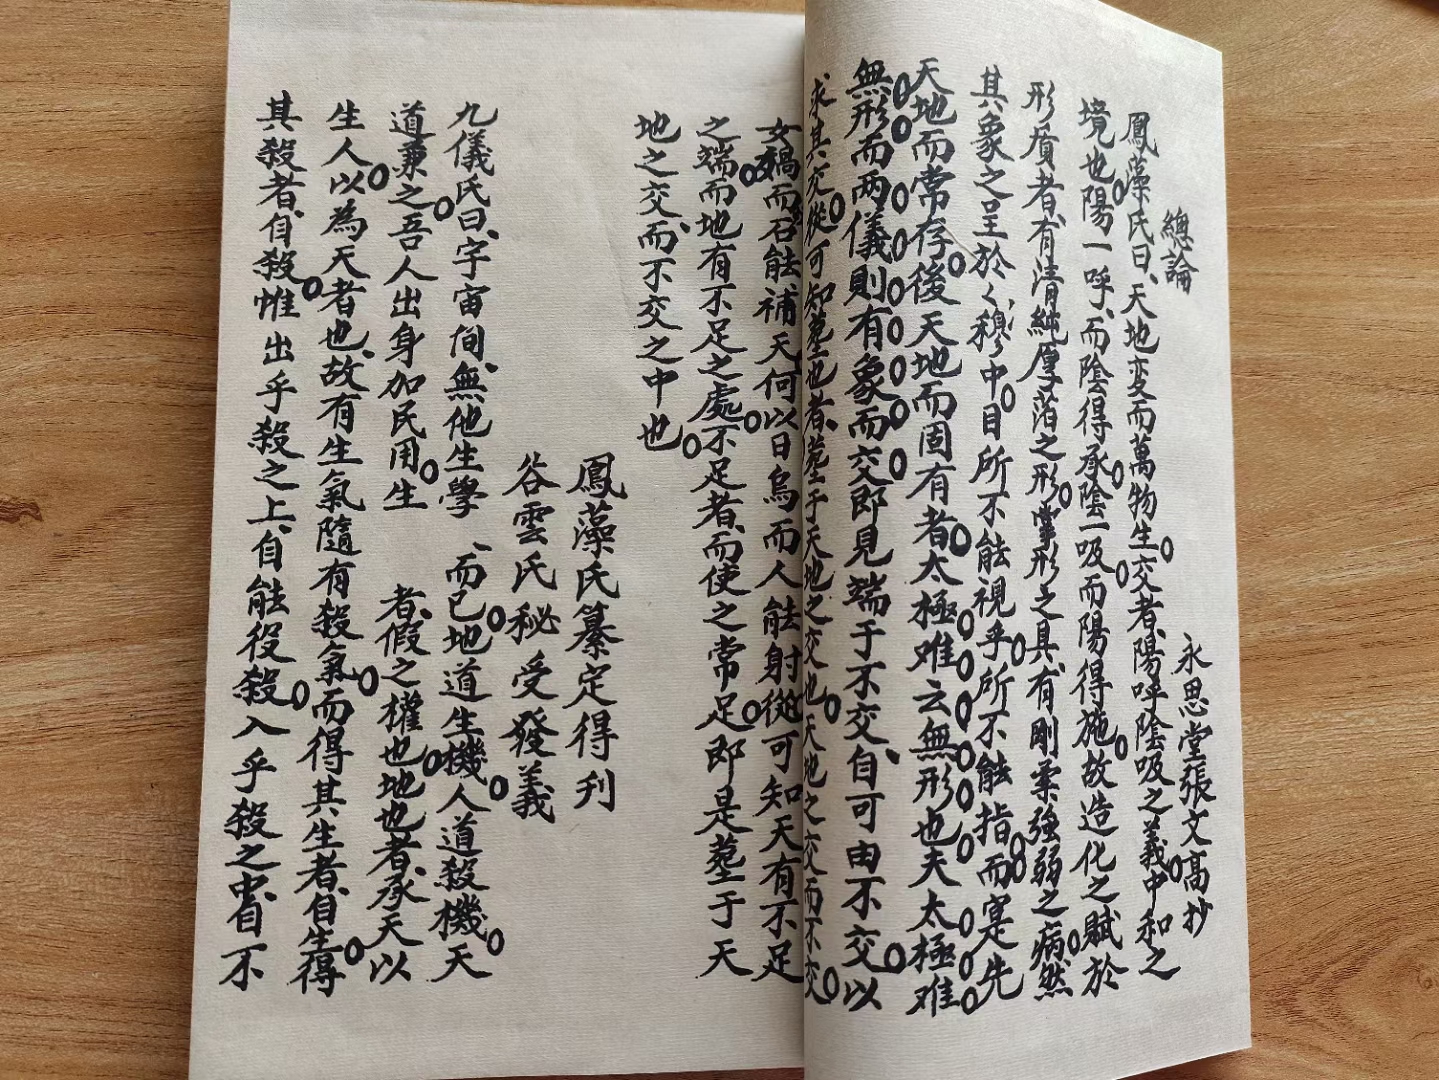 總論
永思堂張文高抄
鳳藻氏曰、天地变而萬物生。交者、陽呼陰吸之義。中和之
境也。陽一呼、而陰得承。陰一吸而陽得施。故造化之賦於
形質者、有清純厚落之形。掌形之具、有剛柔強弱之病。然
其象之呈於〻穆〻中。目所不能視乎。所不能指而寔先
天地而常存。後天地而固有者。太極难云無形也。夫太極难
無形。而两儀則有象而交。即見端于不交、自可由不交。以
求其交。從可知墓也者、墓于天地之交也。天地之交而不交。
女媧而石能補天。何以日烏而人能射。從可知天有不足
之端。而地有不足之處。不足者、而使之常足。即是墓于天
地之交、而不交之中也。
鳳藻氏纂定得刋
谷雲氏秘受發義
九儀氏曰、宇宙间、無他生學、而已。地道生機。人道殺機。天
道兼之。吾人出身加民用。生者、假之權也。地也者、承天以
生人。以為天者也、故有生氣隨有殺氣。而得其生者、自生。得
其殺者、自殺。惟出乎殺之上、自能役殺。入乎殺之中、自不